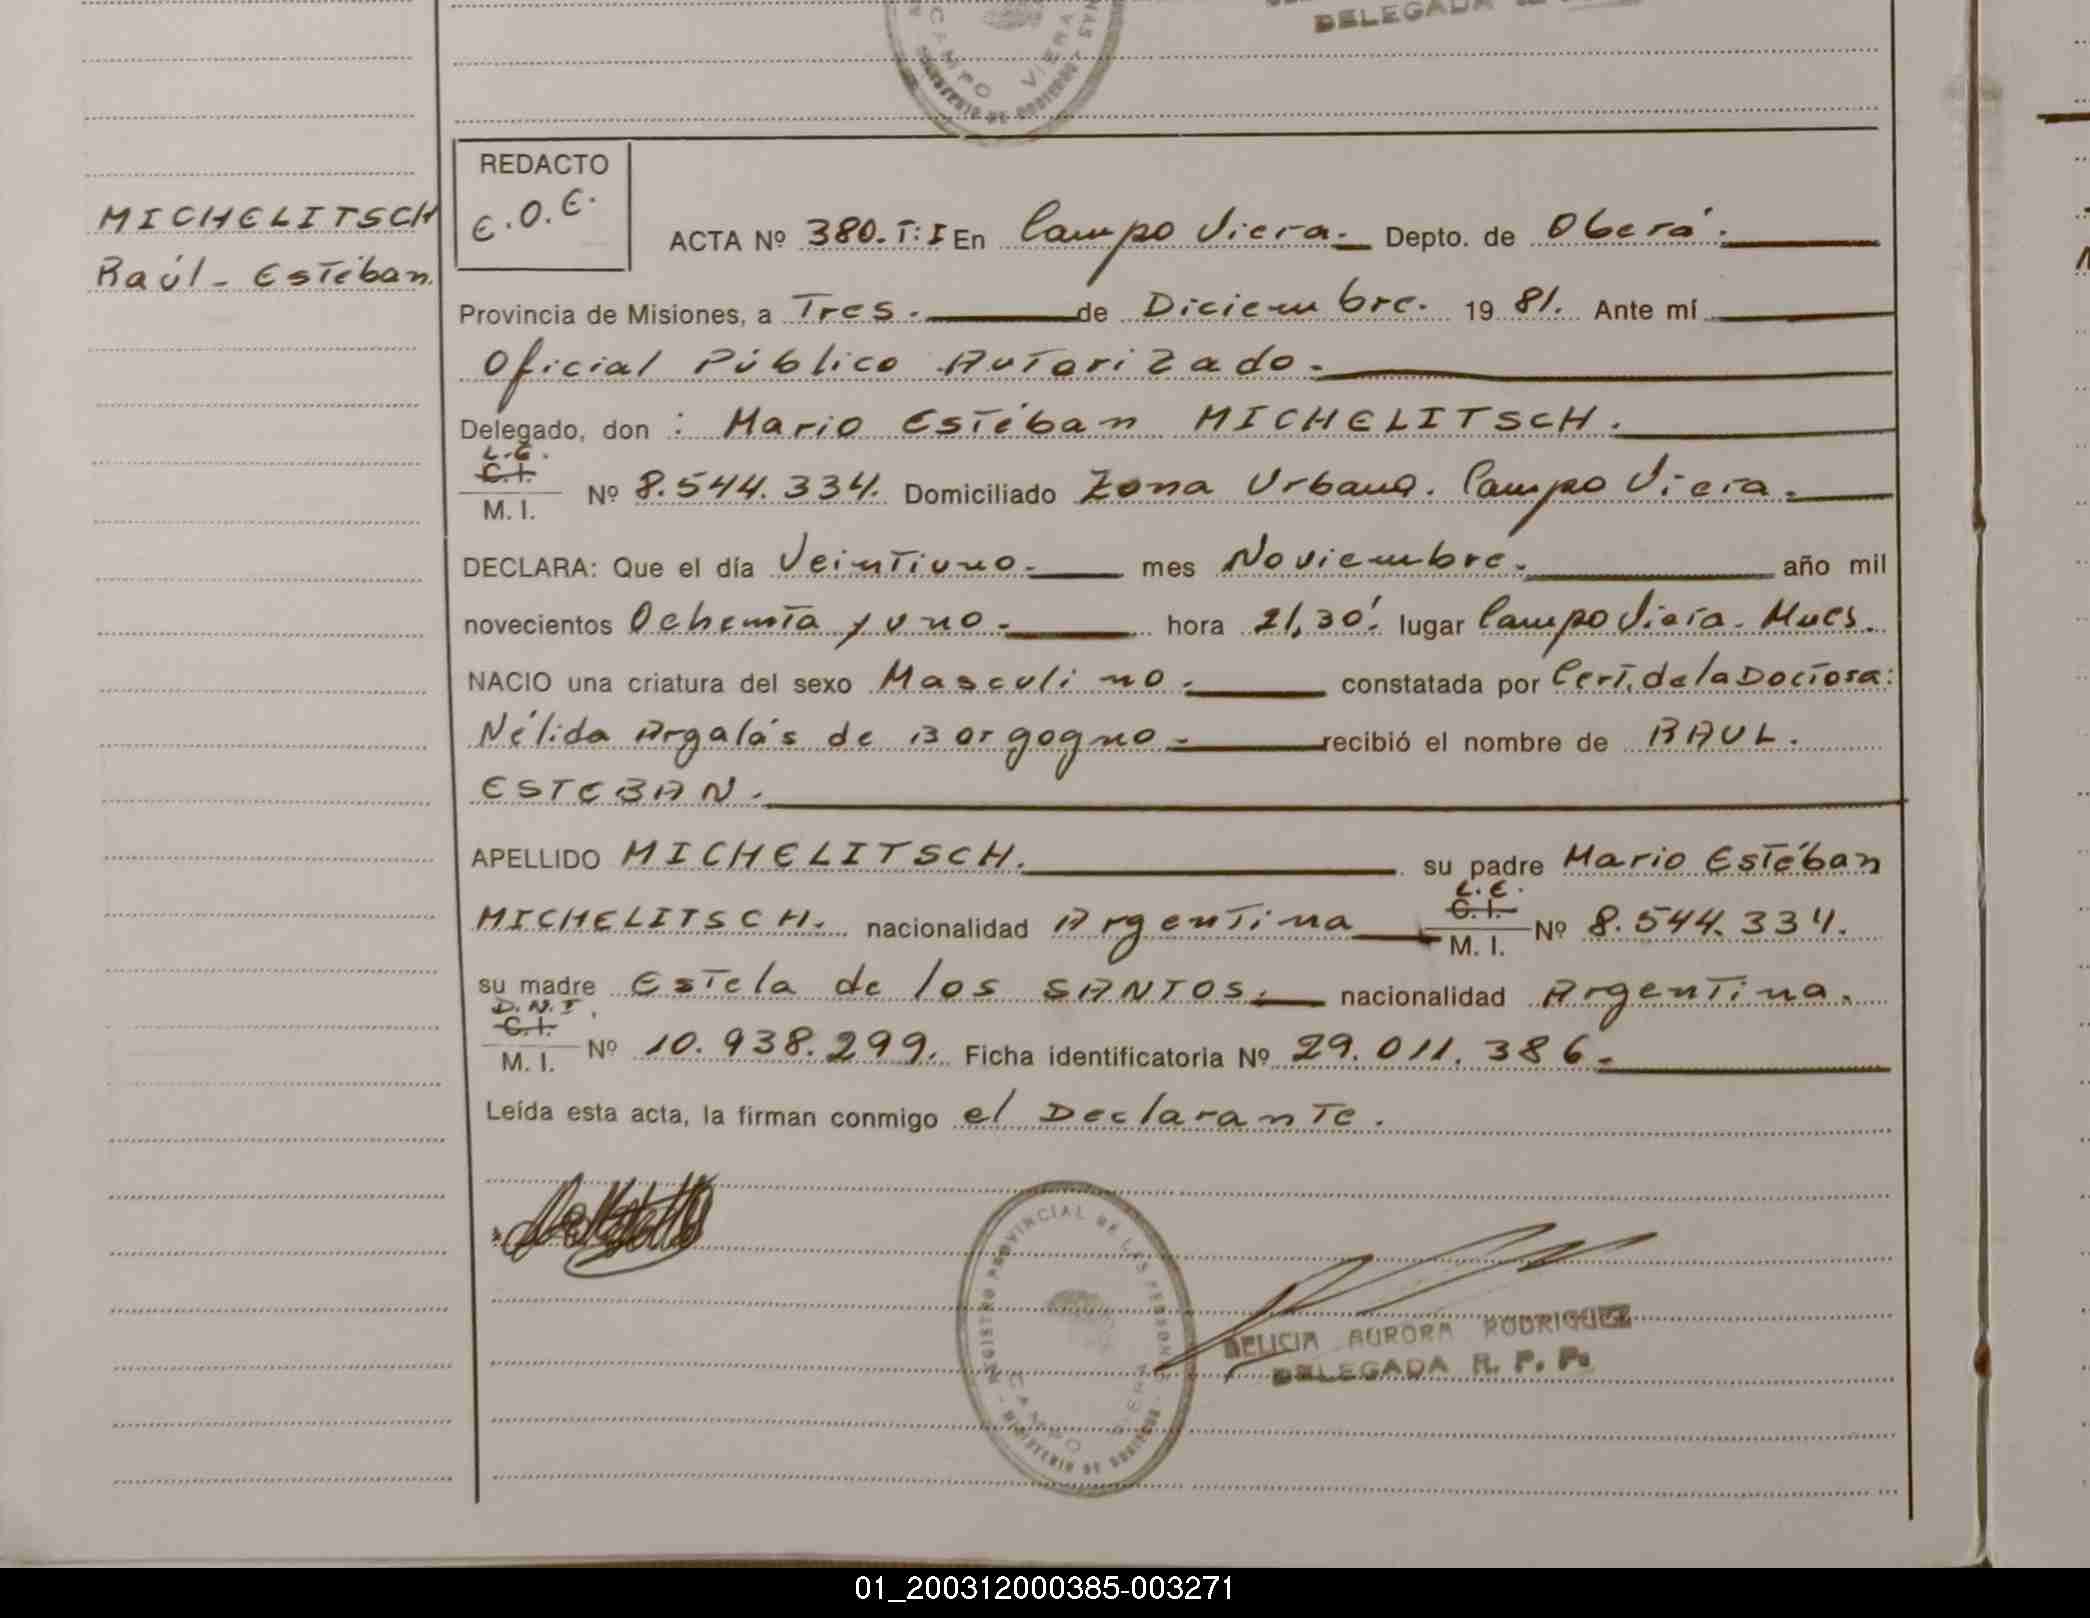 DELEGADA
CAMPO VIERA
MINISTERIO DE GOBIERNO
MICHELITSCH
Raúl - Estéban.
REDACTO
E.O.E.
ACTA Nº 380. T: I En Campo Viera. Depto. de Oberá.
Provincia de Misiones, a Tres. de Diciembre. 19 81. Ante mí
Oficial Público Autorizado.
Delegado, don : Mario Estéban MICHELITSCH.
L.E.
C.I.
M. I. Nº 8.544.334. Domiciliado Zona Urbana. Campo Viera.
DECLARA: Que el día Veintiuno. mes Noviembre. año mil
novecientos Ochenta y uno. hora 21,30'. lugar Campo Viera. Mnes.
NACIO una criatura del sexo Masculino. constatada por Cert. de la Doctora:
Nélida Argalás de Borgogno. recibió el nombre de RAUL.
ESTEBAN.
APELLIDO MICHELITSCH. su padre Mario Estéban
L.E.
C.I.
MICHELITSCH. nacionalidad Argentina M. I. Nº 8.544.334.
su madre Estela de los SANTOS. nacionalidad Argentina.
D.N.I.
C.I.
M. I. Nº 10.938.299. Ficha identificatoria Nº 29.011.386.
Leída esta acta, la firman conmigo el Declarante.
REGISTRO PROVINCIAL DE LAS PERSONAS
CAMPO VIERA
MINISTERIO DE GOBIERNO
DELICIA AURORA RODRIGUEZ
DELEGADA R. P. P.
01_200312000385-003271